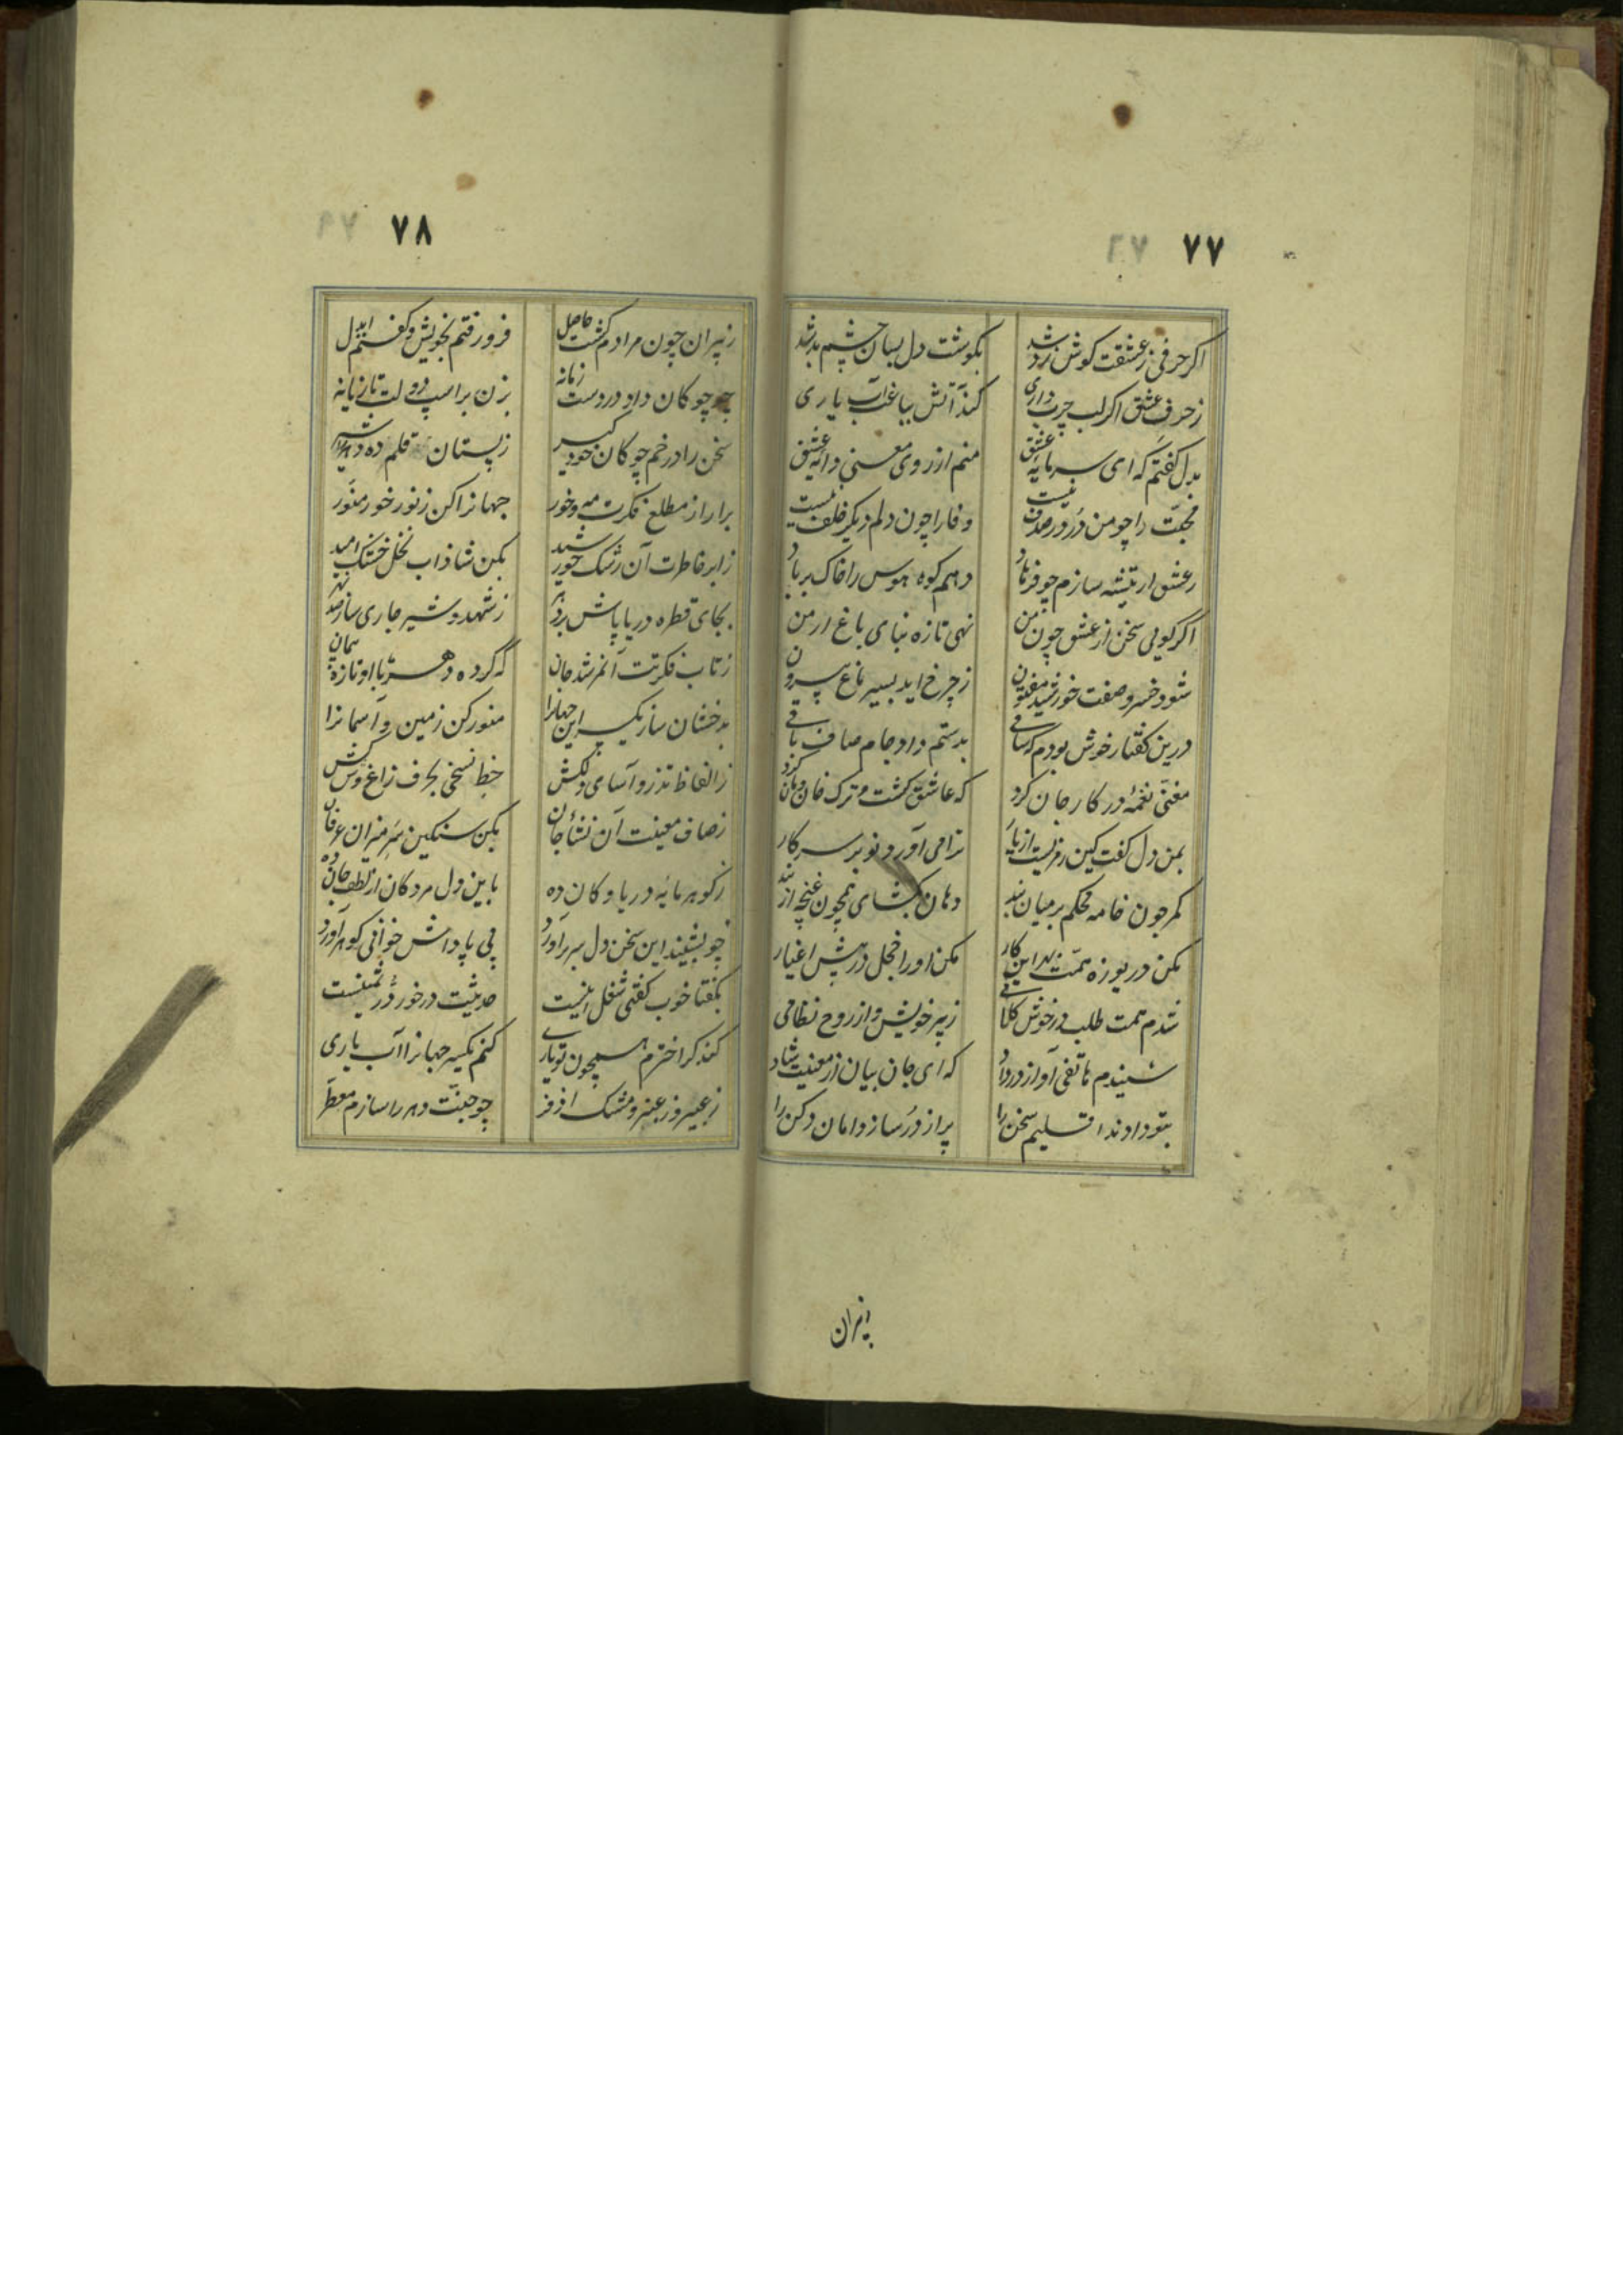 ۷۷
اگر حرفی ز عشقت گوش زد شد بگوشت دل بسان چشم بد شد
ز حرف عشق اگر لب چرب داری کند آتش بباغت آب یاری
بدل گفتم که ای سرمایه عشق منم از روی معنی دایه عشق
محبت را چو من در در صدف نیست وفا را چون دلم دیگر خلف نیست
ز عشق ار تیشه سازم چو فرهاد دهم کوه هوس را خاک بر باد
اگر گویی سخن از عشق چون من نهی تازه بنای باغ ارمن
شود خسرو صفت خورشید مفتون ز چرخ اید بسیر باغ بیرون
درین گفتار خوش بودم که ساقی بدستم داد جام صاف باقی
مغنی نغمهٔ در کار جان کرد که عاشق گشت و ترک خان و مان کرد
بمن دل گفت کین رمزیست از یار ترا می آورد نو بر سر کار
کمر چون خامه محکم بر میان بند دهان بگشای همچون غنچه از
بکن دریوزه همت بهر این کار مکن او را خجل در پیش اغیار
شدم همت طلب در خوش کلامی ز پیر خویش و از روح نظامی
شنیدم هاتفی آواز در داد که ای جان بیان از معنیت شاد
بتو دادند اقلیم سخن را پر از در ساز دامان دکن را
۷۸
ز پیران چون مرادم گشت حاصل فرو رفتم بخویش و گفتم ایدل
چو چوگان داد در دستت زمانه بزن بر اسپ دولت تازیانه
سخن را در خم چوگان خود گیر ز پستان قلم ده
برار از مطلع فکرت مه و خور جهانرا کن ز نور خور منور
ز ابر خاطرت آن رشک خورشید بکن شاداب نخل خشک امید
بجای قطره دریا پاش بر دهر ز شهد و شیر جاری ساز صد نهر
ز تاب فکرتت آنمرشد جان که کرده دهر با او تازه پیمان
بدخشان ساز یکسر این جهانرا منور کن زمین و آسمانرا
ز الفاظ تذرو آسای دلکش خط نسخی بحرف زاغ وش کش
ز صاف معنیت آن نشأ جان بکن سنگین سر میزان عرفان
ز گوهر مایه دریا و کان ده باین دل مردگان از لطف جان ده
چو بشنید این سخن دل سر برآورد پی پاداش خوانی گوهر آورد
بگفتا خوب گفتی شغل اینست حدیثت در خور در ثمینست
کند گر اخترم همچون تو یاری کنم یکسر جهانرا آب یاری
ز عبیر و ز عنبر و مشک اذفر چو جنت دهر را سازم معطر